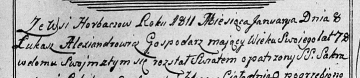 Ze Wsi Horbaczow Roku 1811 Miesiąca Januarya Dnia 8
Łukasz Alexandrowicz Gospodarz mający Wieku Swojego lat 78
w domu Swoim z tym się rozstał Swiatem opatrzony SS. Sakra
pogrzebiono